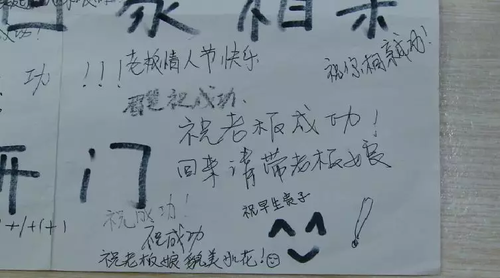 回家相亲
成功!
功 !!!老板情人节快乐
祝你相亲成功!
祝成功.
祝老板成功!
开门
回来请带老板娘
祝成功!
祝早生贵子
+1+1(+1
祝成功
祝老板娘貌美如花!